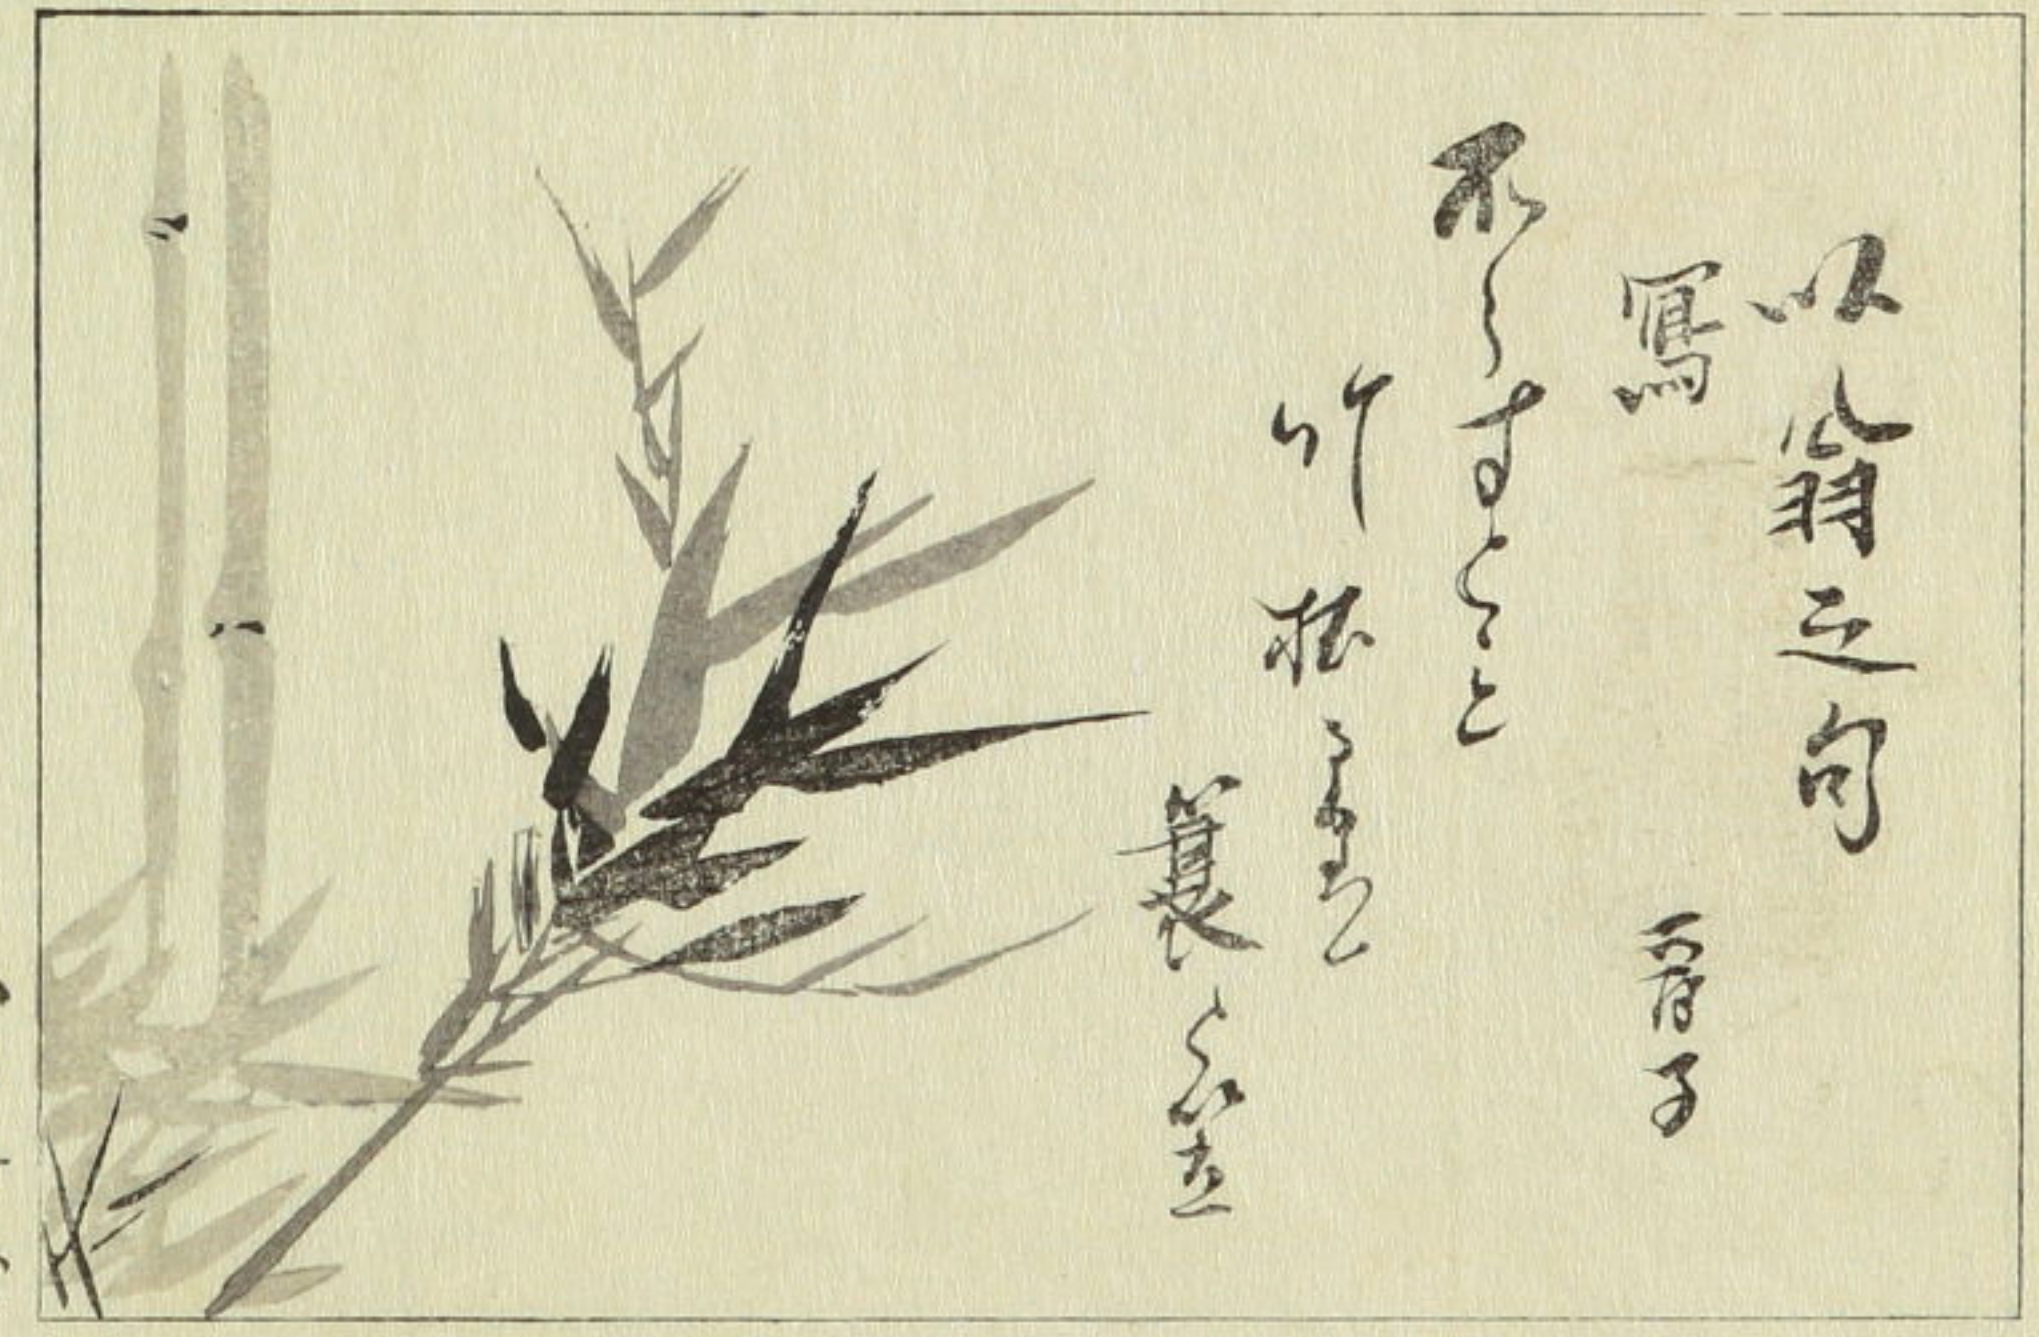 以翁之句
寫
不らすとも
竹植る日は
蓑と笠